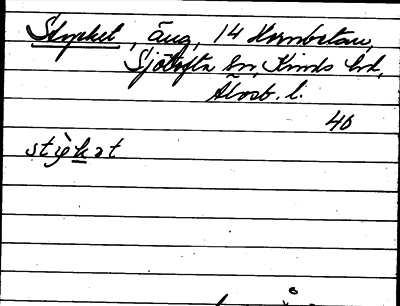 Stycket, äng, 14 Hornbetan,
Sjötofta sn, Kinds hd,
Älvsb. l.
40
stỳkət